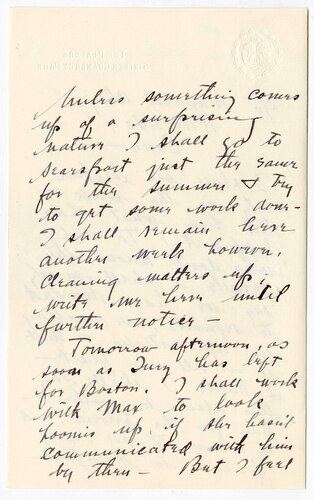 Unless something comes
up of a surprising
nature I shall go to
Searsport just the same
for the summer & try
to get some work done -
I shall remain here
another week however,
cleaning matters up,
write me here until
further notice -
Tomorrow afternoon, as
soon as has left
for Boston. I shall work
with Max to look
up if she hasn't
communicated with him
by then - But I feel